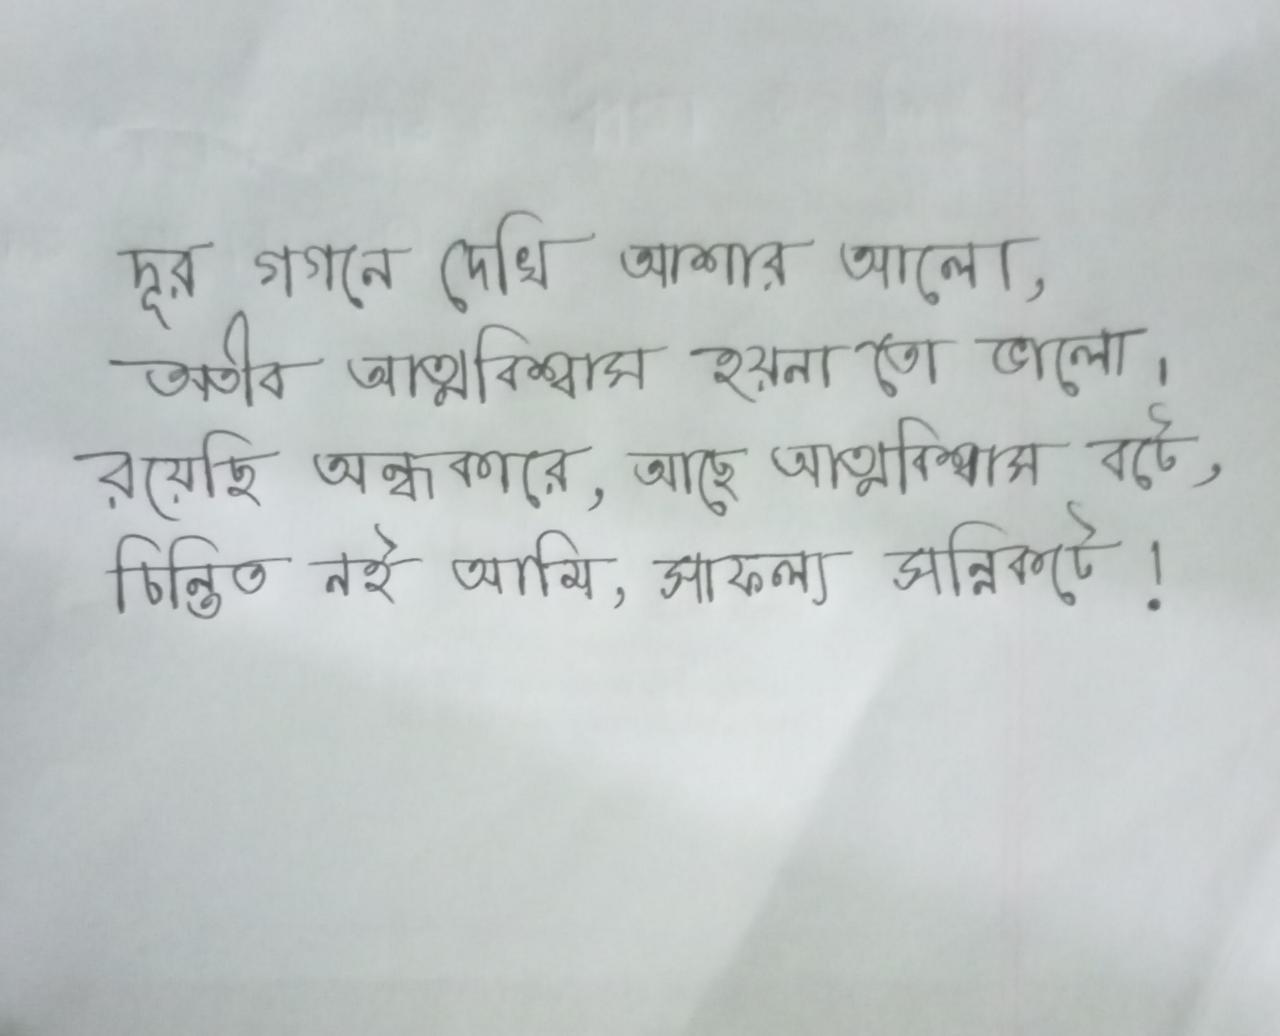 দূর গগনে দেখি আশার আলো,
অতীব আত্মবিশ্বাস হয়না তো ভালো।
রয়েছি অন্ধকারে, আছে আত্মবিশ্বাস বটে,
চিন্তিত নই আমি, সাফল্য সন্নিকটে!